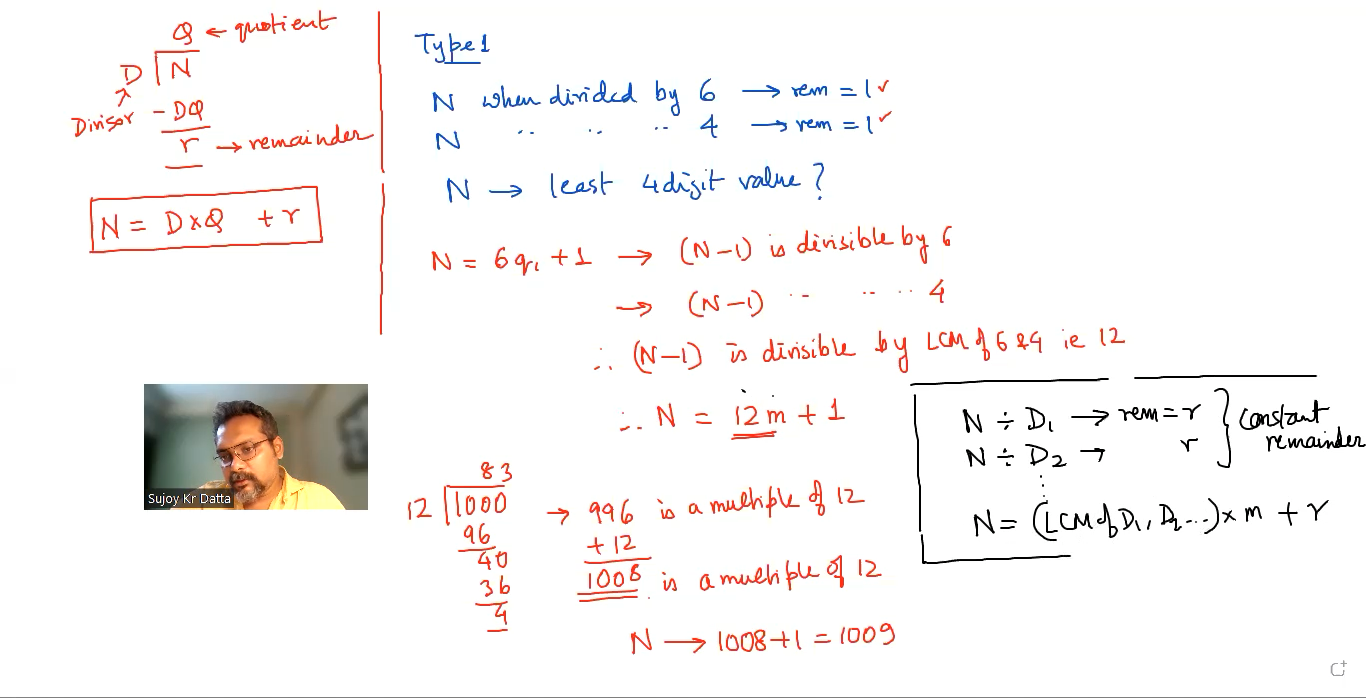 Q ← quotient
D N
Divisor - DQ
r → remainder
N = D×Q + r
Type 1
N when divided by 6 → rem = 1 ✓
N " " " 4 → rem = 1 ✓
N → least 4 digit value?
N = 6q₁ + 1 → (N-1) is divisible by 6
→ (N-1) " " " 4
∴ (N-1) is divisible by LCM of 6 & 4 ie 12
∴ N = 12m + 1
83
12 1000 → 996 is a multiple of 12
96 + 12
40 1008 is a multiple of 12
36
4
N → 1008 + 1 = 1009
N ÷ D₁ → rem = r } constant remainder
N ÷ D₂ → r
⋮
N = (LCM of D₁, D₂ ...) × m + r
Sujoy Kr Datta